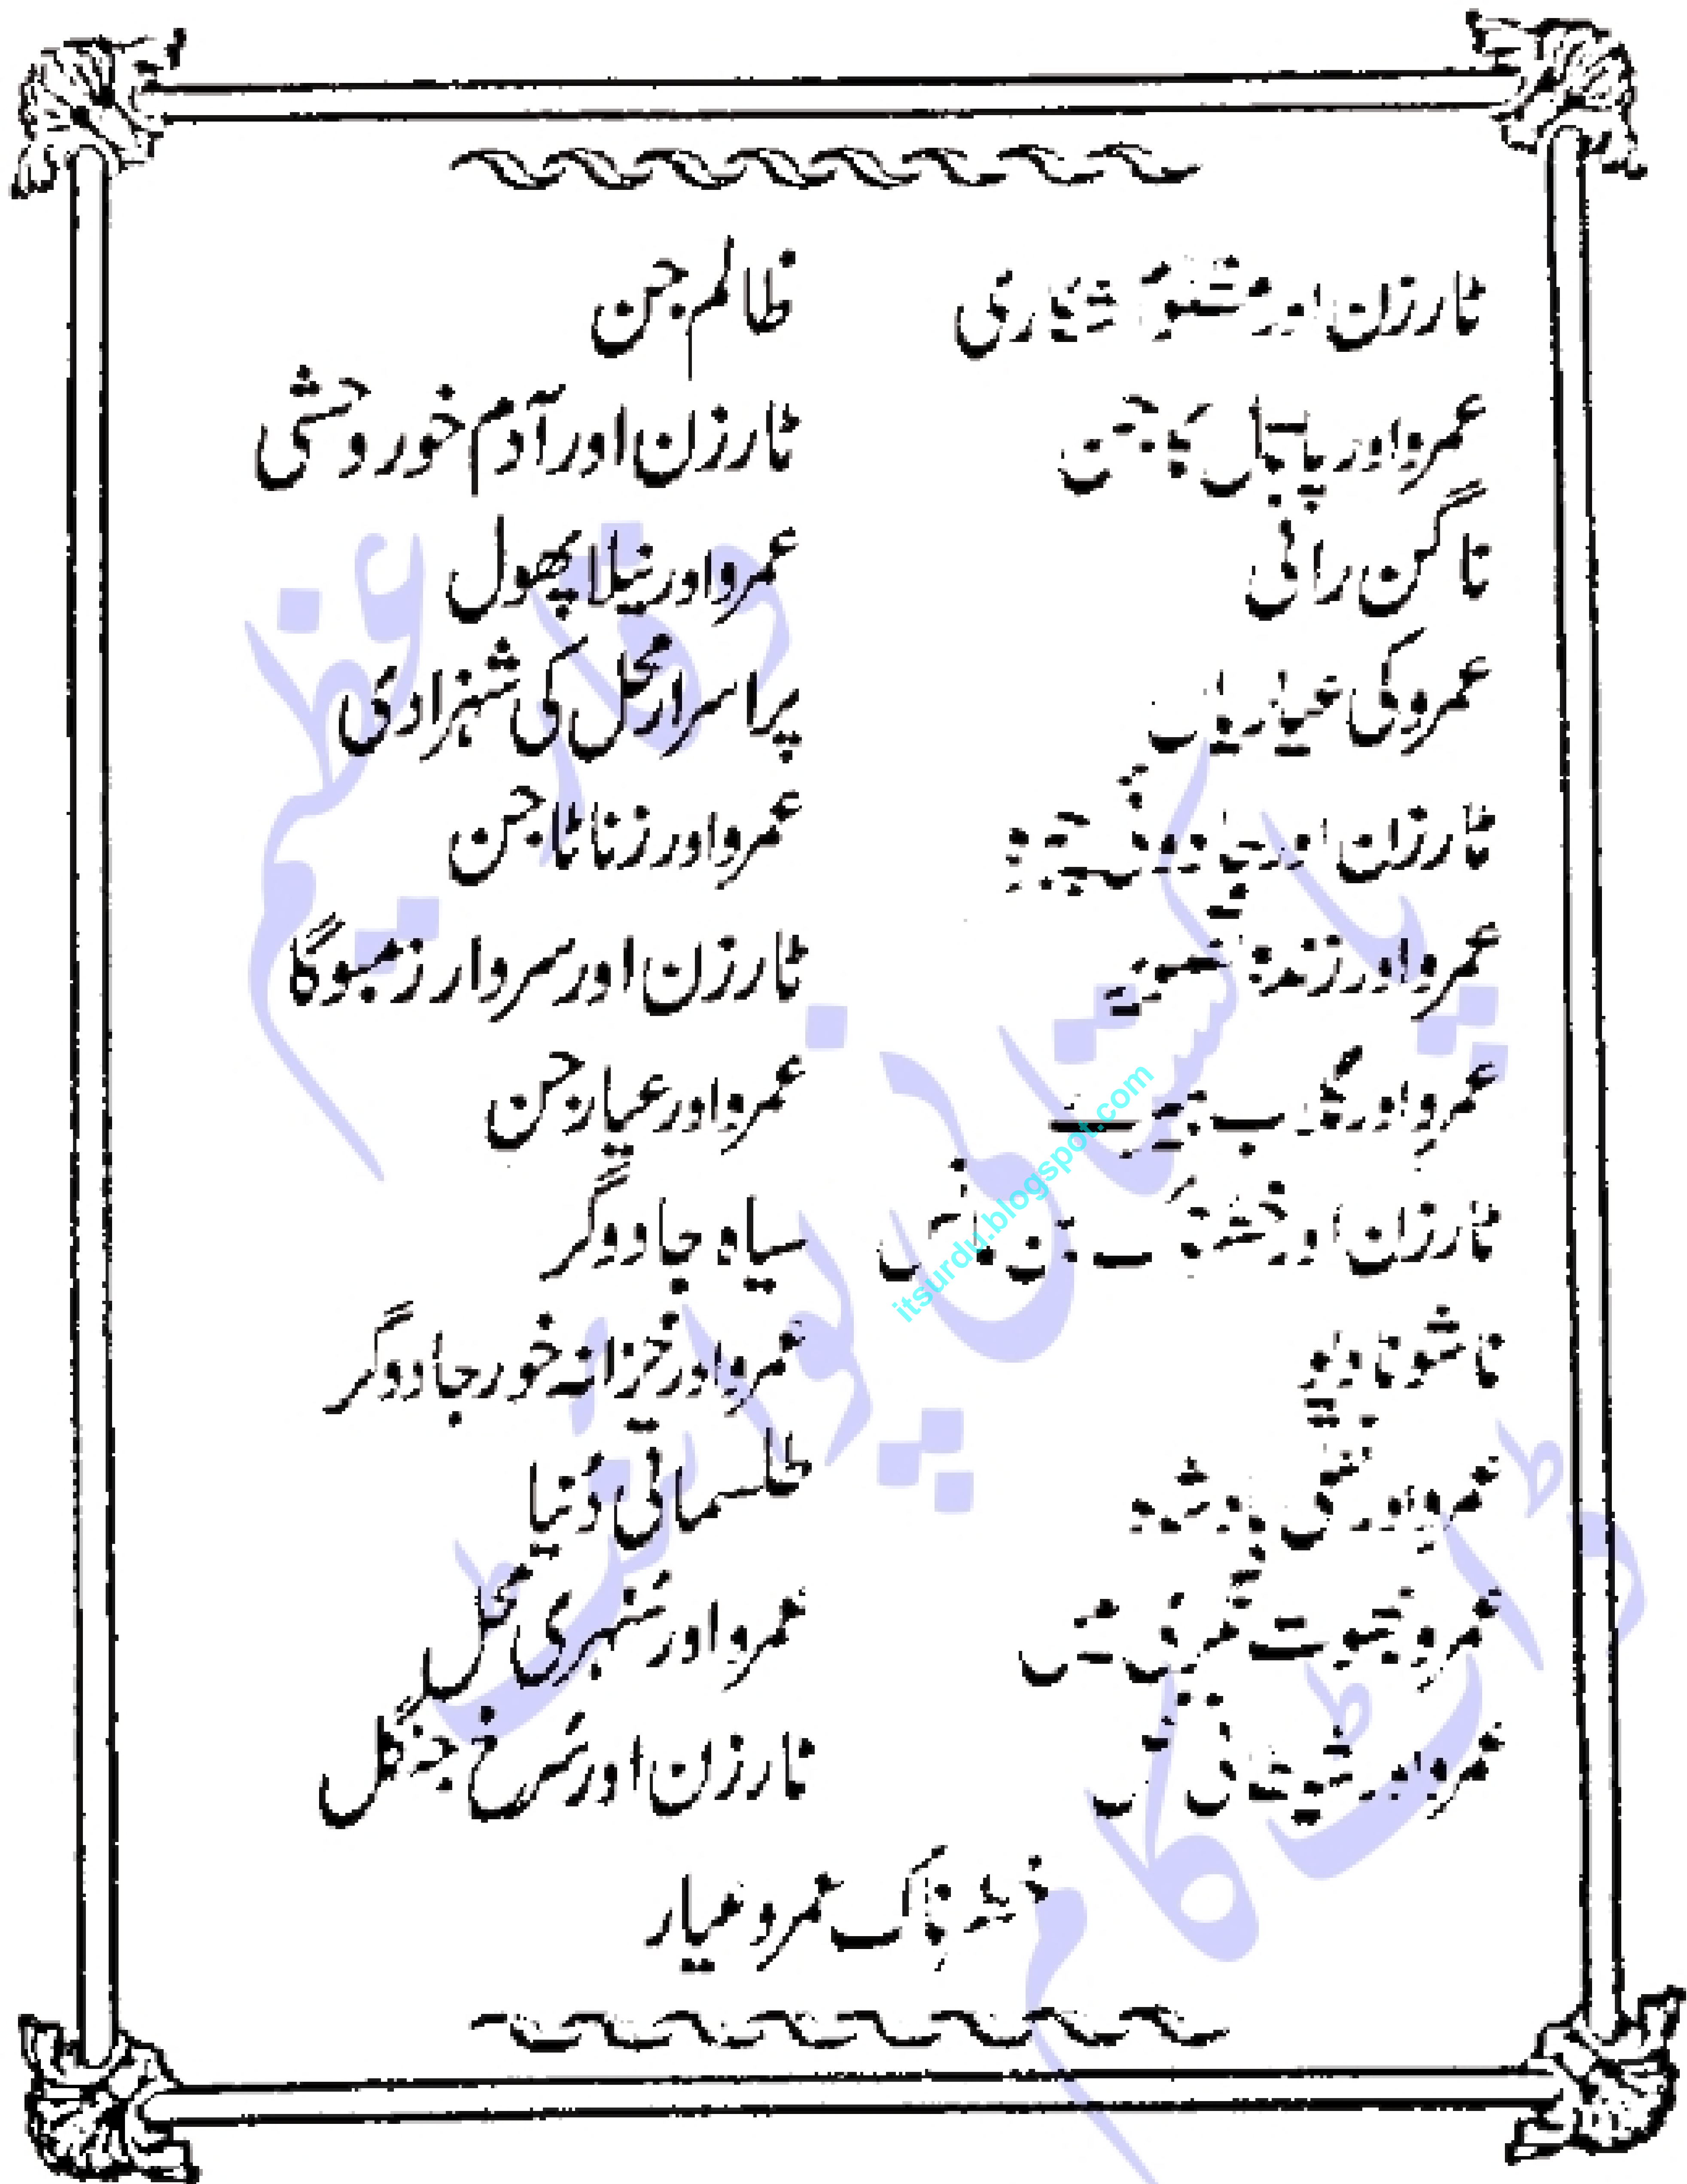 ٹارزن اور شکاری
عمرو اور پاتال کا جن
ناگن رانی
عمرو کی عیاریاں
ٹارزن اور جادو
عمرو اور زندہ
عمرو اور
ٹارزن اور بن مانس
ناشونا دیو
عمرو اور نقلی بادشاہ
عمرو بھوت میں
عمرو اور شیطانی
ظالم جن
ٹارزن اور آدم خور وحشی
عمرو اور نیلا پھول
پراسرار محل کی شہزادی
عمرو اور زناٹا جن
ٹارزن اور سردار زمبوگا
عمرو اور عیار جن
سیاہ جادوگر
عمرو اور خزانہ خور جادوگر
طلسماتی دُنیا
عمرو اور سُنہری محل
ٹارزن اور سُرخ جنگل
خطرناک عمرو عیار
وقار عظیم
پاکستانی پوائنٹ
ڈاٹ کام
itsurdu.blogspot.com